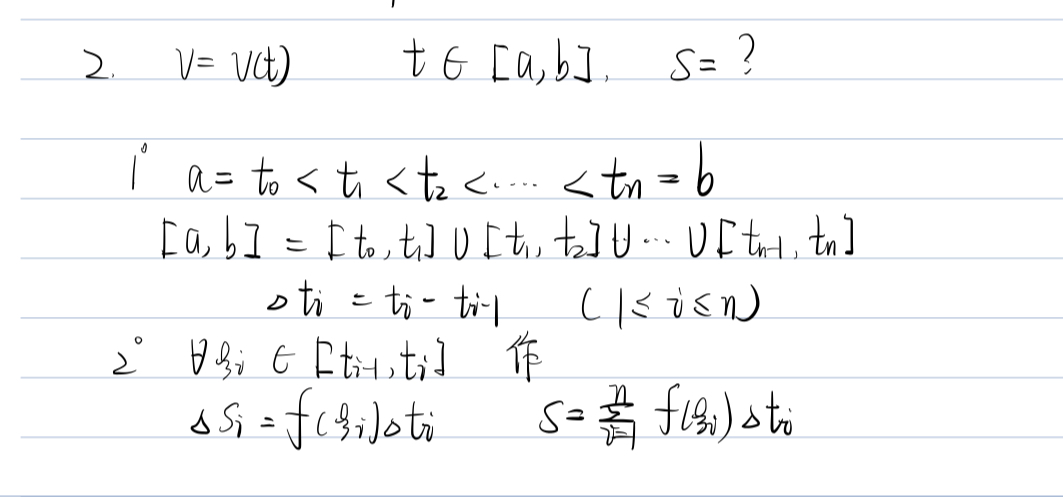 2. V = V(t) t ∈ [a,b]. S = ?
1° a = t₀ < t₁ < t₂ < ···· < tₙ = b
[a,b] = [t₀,t₁] ∪ [t₁,t₂] ∪ ··· ∪ [tₙ₋₁,tₙ]
△tᵢ = tᵢ - tᵢ₋₁ (1 ≤ i ≤ n)
2° ∀ξᵢ ∈ [tᵢ₋₁,tᵢ] 作
△Sᵢ = f(ξᵢ)△tᵢ S = ∑ⁿᵢ₌₁ f(ξᵢ)△tᵢ